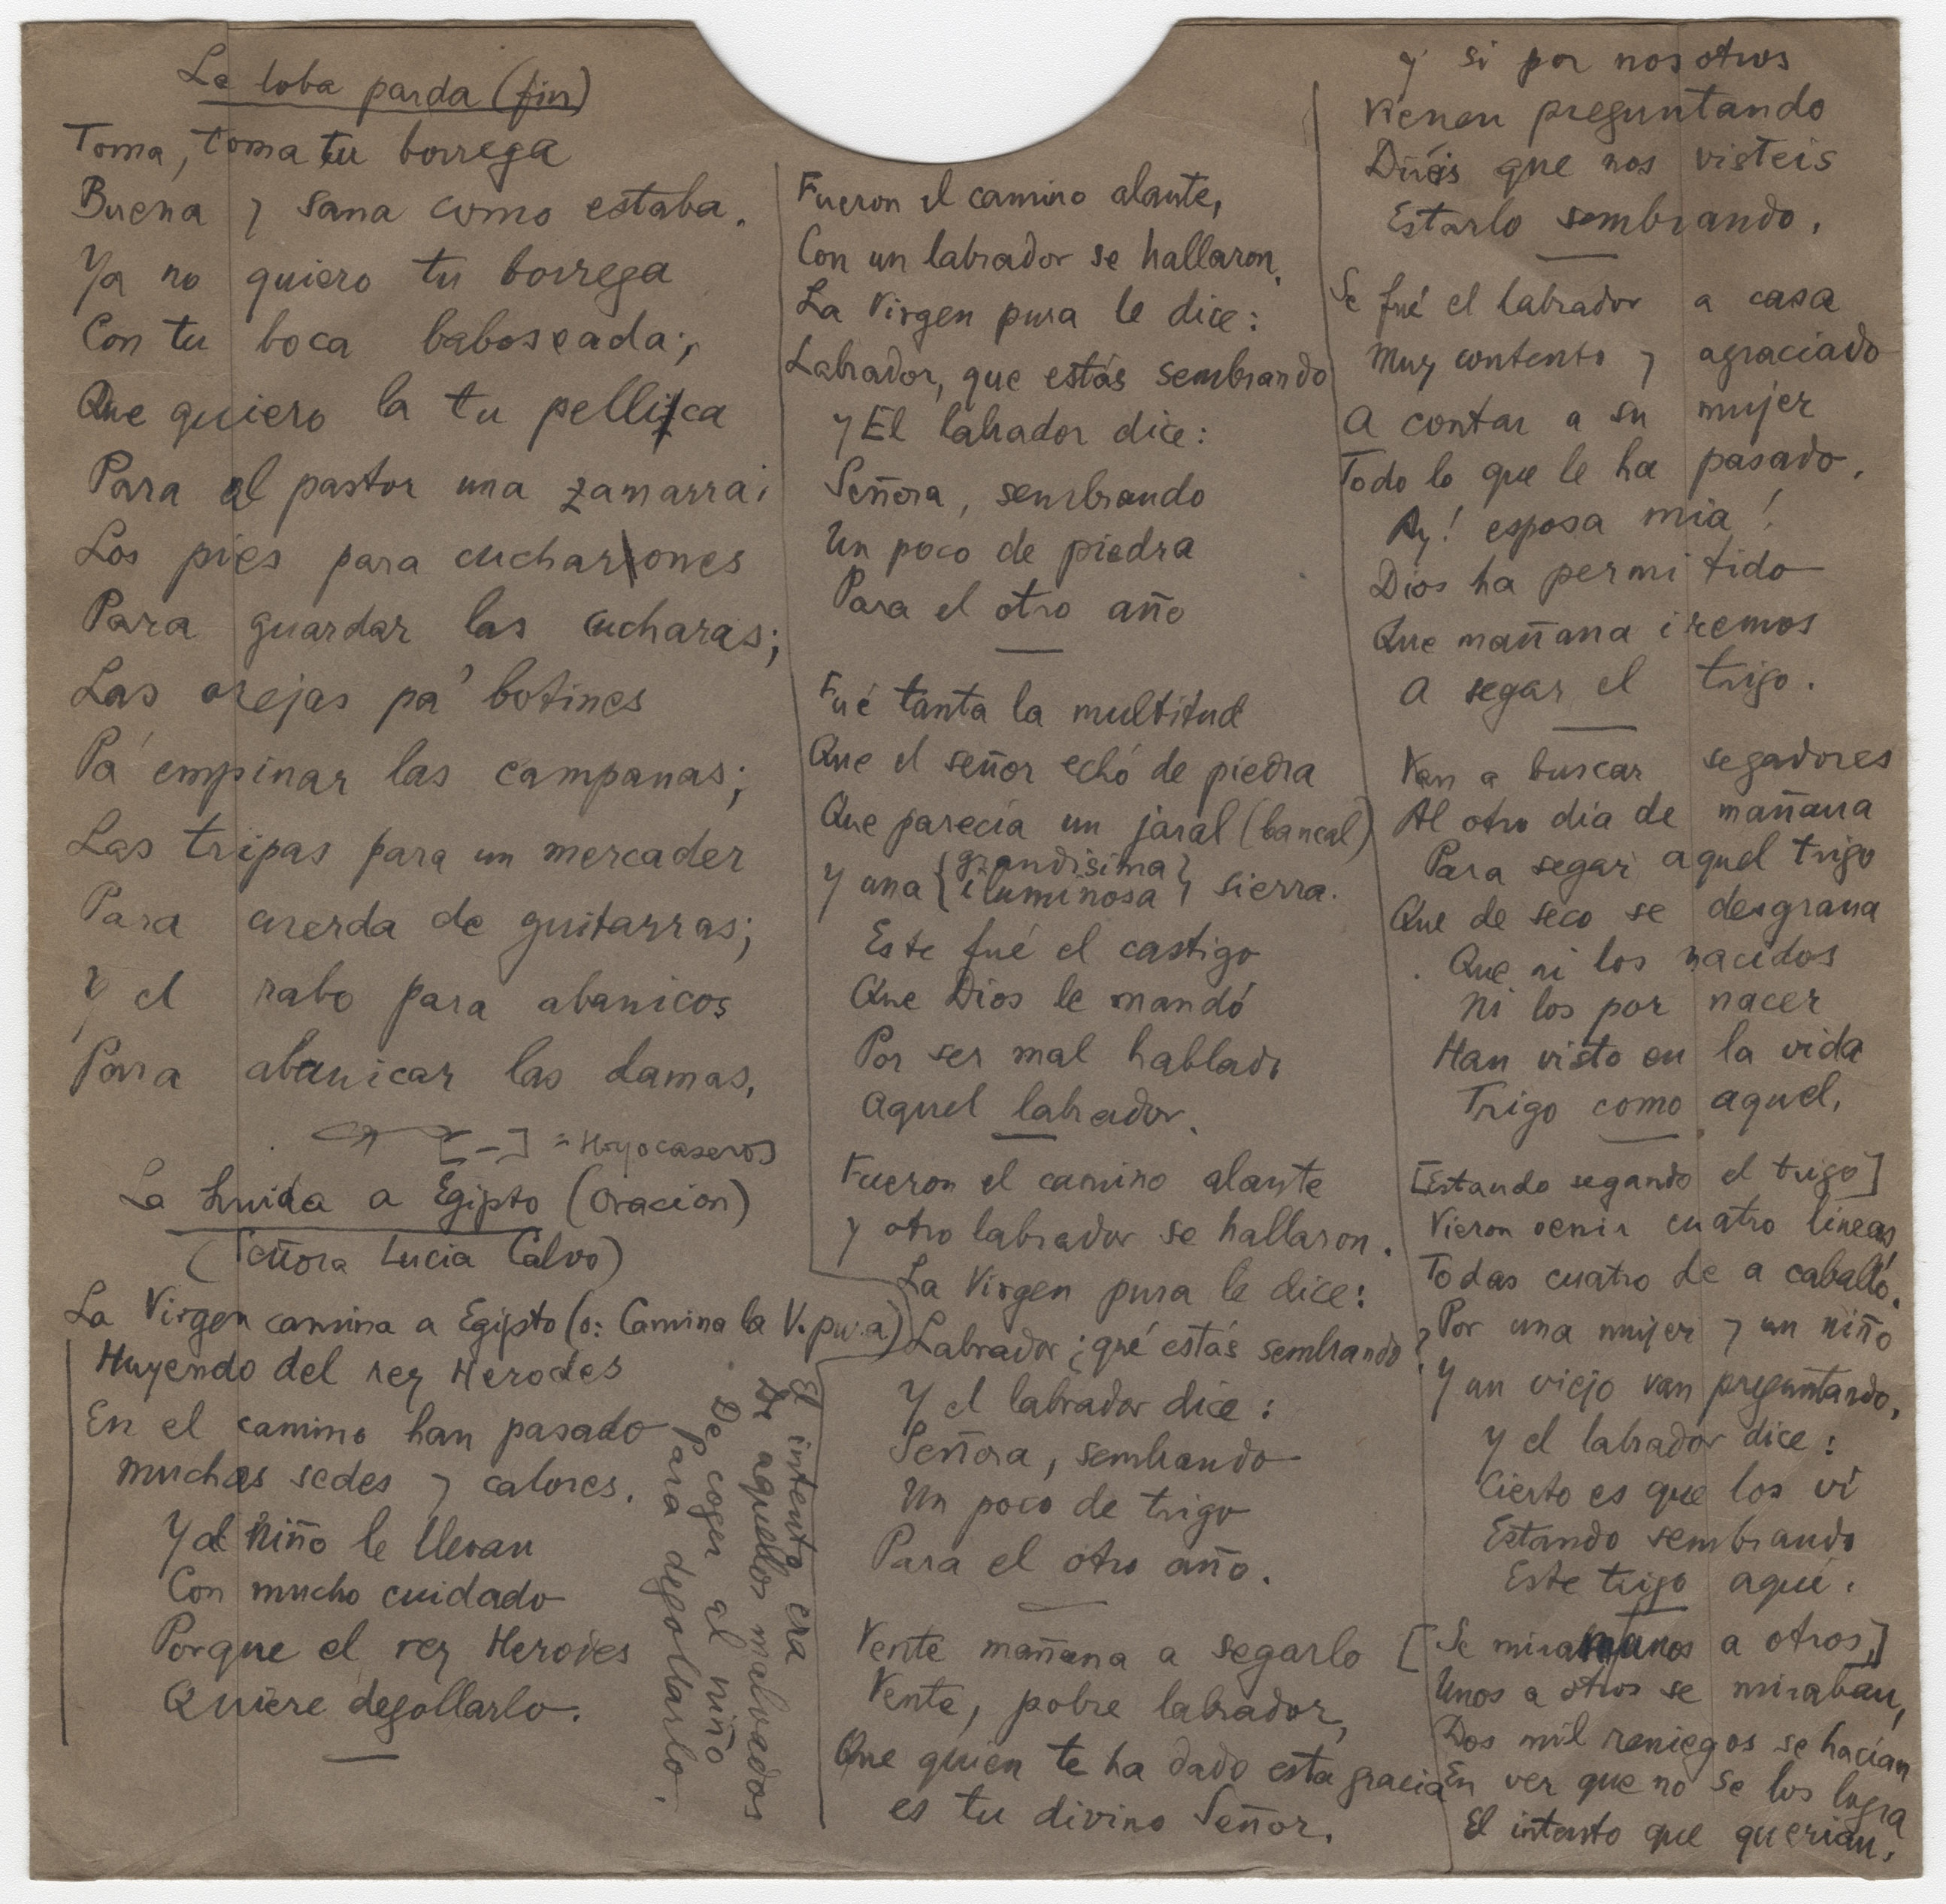 La loba parda (fin)
Toma, toma tu borrega
Buena y sana como estaba.
Ya no quiero tu borrega
Con tu boca baboseada;
Que quiero la tu pellica
Para al pastor una zamarra;
Los pies para cucharones
Para guardar las cucharas;
Las orejas pa' botines
Pa' empinar las campanas;
Las tripas para un mercader
Para cuerda de guitarras;
Y el rabo para abanicos
Para abanicar las damas.
[-] = Hoyocaseros
La huida a Egipto (Oración)
(Señora Lucia Calvo)
La Virgen camina a Egipto (o: Camina la V. pura)
Huyendo del rey Herodes
En el camino han pasado
muchas sedes y calores.
Y al Niño le llevan
Con mucho cuidado
Porque el rey Herodes
Quiere degollarlo.
El intento era
De aquellos malvados
De coger al niño
Para degollarlo.
Fueron el camino alante,
Con un labrador se hallaron.
La Virgen pura le dice:
Labrador, que estás sembrando
y El labrador dice:
Señora, sembrando
Un poco de piedra
Para el otro año
Fué tanta la multitud
Que el señor echó de piedra
Que parecía un jaral (bancal)
y una {grandisima
iluminosa} sierra.
Este fué el castigo
Que Dios le mandó
Por ser mal hablado
Aquel labrador.
Fueron el camino alante
y otro labrador se hallaron.
La Virgen pura le dice:
Labrador ¿qué estás sembrando?
Y el labrador dice:
Señora, sembrando
Un poco de trigo
Para el otro año.
Vente mañana a segarlo
Vente, pobre labrador,
Que quien te ha dado esta gracia
es tu divino Señor.
y si por nosotros
Vienen preguntando
Diréis que nos visteis
Estarlo sembrando.
Se fué el labrador a casa
Muy contento y agraciado
A contar a su mujer
Todo lo que le ha pasado.
Ay! esposa mia!
Dios ha permitido
Que mañana iremos
A segar el trigo.
Van a buscar segadores
Al otro día de mañana
Para segar aquel trigo
Que de seco se desgrana
Que ni los nacidos
Ni los por nacer
Han visto en la vida
Trigo como aquel.
[Estando segando el trigo]
Vieron venir cuatro líneas
Todas cuatro de a caballo.
Por una mujer y un niño
Y un viejo van preguntando.
Y el labrador dice:
Cierto es que los vi
Estando sembrando
Este trigo aquí.
[Se miran unos a otros,]
Unos a otros se miraban,
Dos mil reniegos se hacían
En ver que no se los logra
El intento que querían.